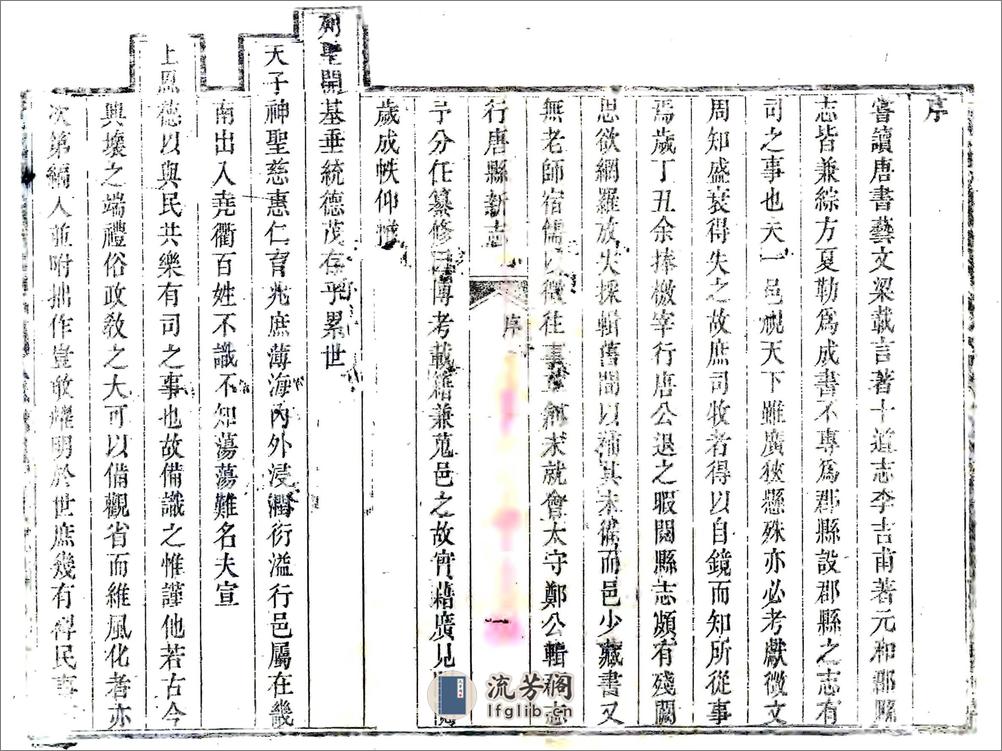 序
嘗讀唐書藝文梁載言著十道志李吉甫著元和郡縣
志皆兼綜方夏勒爲成書不專爲郡縣設郡縣之志有
司之事也夫一邑視天下雖廣狹懸殊亦必考獻徵文
周知盛衰得失之故庶司牧者得以自鏡而知所從事
焉歲丁丑余捧檄宰行唐公退之暇閱縣志頗有殘闕
思欲網羅放失採輯舊聞以補其未備而邑少藏書又
無老師宿儒以徵往事草創未就會太守鄭公輯郡志
行唐縣新志
序
一
予分任纂修因博考載籍兼蒐邑之故實藉廣見聞
歲成帙仰惟
列聖開基垂統德茂存乎累世
天子神聖慈惠仁育兆庶薄海內外浸潤衍溢行邑屬在畿
南出入堯衢百姓不識不知蕩蕩難名夫宣
上恩德以與民共樂有司之事也故備識之惟謹他若古今
興壞之端禮俗政敎之大可以備觀省而維風化者亦
次第編入並附拙作豈敢耀明於世庶幾有裨民事
流芳閣
lfglib.cn